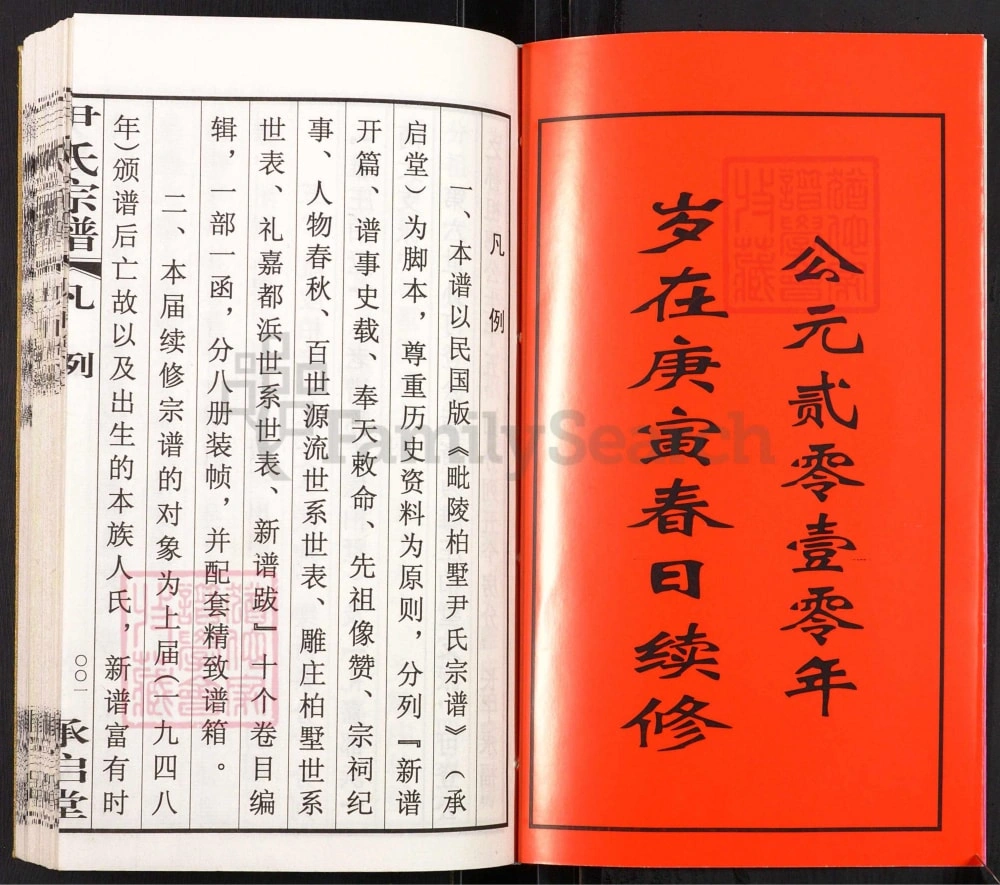 公元贰零壹零年
岁在庚寅春日续修
凡例
一、本谱以民国版《毗陵柏墅尹氏宗谱》（承
启堂）为脚本，尊重历史资料为原则，分列『新谱
开篇、谱事史载、奉天敕命、先祖像赞、宗祠纪
事、人物春秋、百世源流世系世表、雕庄柏墅世系
世表、礼嘉都浜世系世表、新谱跋』十个卷目编
辑，一部一函，分八册装帧，并配套精致谱箱。
二、本届续修宗谱的对象为上届（一九四八
年）颁谱后亡故以及出生的本族人氏，新谱富有时
尹氏宗谱 凡例 〇〇一 承启堂
FamilySearch